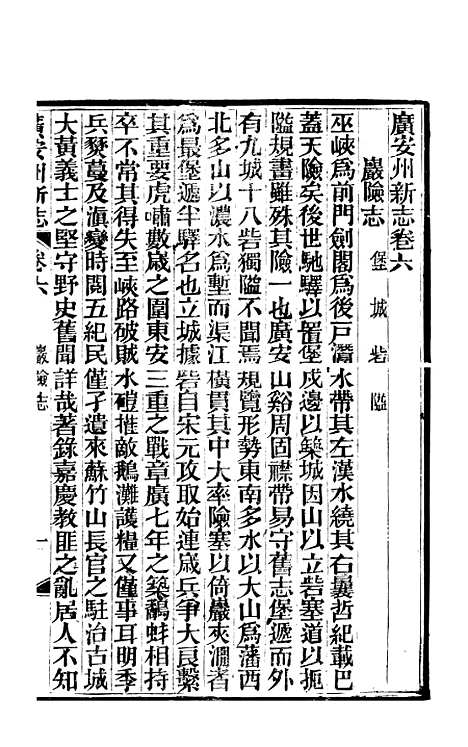 廣安州新志卷六
巖險志
堡 城 砦 隘
巫峽爲前門劍閣爲後戶灊水帶其左漢水繞其右曩哲紀載巴
蓋天險矣後世馳驛以置堡戍邊以築城因山以立砦塞道以扼
隘規畫雖殊其險一也廣安山谿周固襟帶易守舊志堡遞而外
有九城十八砦獨隘不聞焉規覽形勢東南多水以大山爲藩西
北多山以濃水爲塹而渠江橫貫其中大率險塞以倚巖夾㵎者
爲最堡遞半驛名也立城據砦自宋元攻取始連歲兵爭大良繫
其重要虎嘯數歲之圍東安三重之戰章廣七年之築鷸蚌相持
卒不常其得失至峽路破賊水磑摧敵鵝灘護糧又僅事耳明季
兵燹蔓及滇變時閱五紀民僅孑遺來蘇竹山長官之駐治古城
大黃義士之堅守野史舊聞詳哉著錄嘉慶教匪之亂居人不知
廣安州新志
卷六
巖險志
一